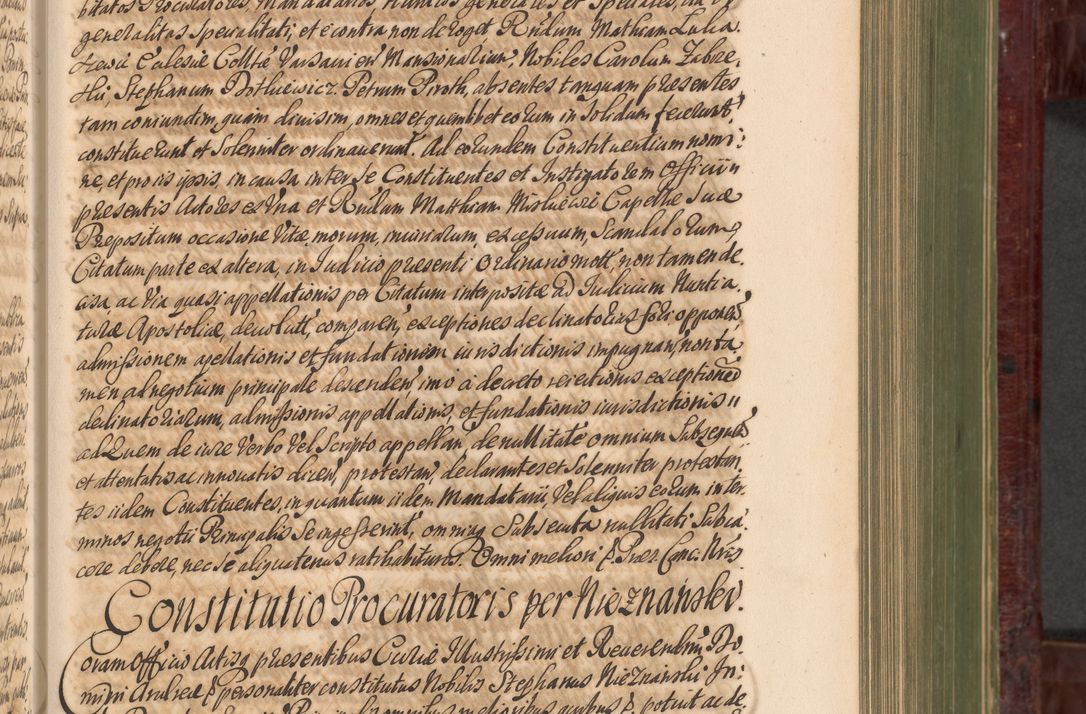 generalitas specialitati, et e contra non deroget Rndum Mathiam Lulia
Eccłesiæ Collte Varsavien Mansionarium. Nobiles Carolum Zabrze,
ski, Stephanum Petrum Piroth, absentes tanquam præsentes
tam coniunctim, quam divisim, omnes et quemlibet eorum in solidum fecerunt,
constituerunt et Solenniter ordinaverunt. Ad eorundem Constituentium nomi:
ne, et pro iis ipsis, in causa inter Se Constituentes et Instigatorem Officii
præsentis Actores ex Una et Rndum Matthiam Capellæ Suæ
Præpositum occasione Vitæ, morum, iniuriarum, excessuum, Scandalorumq
Citatum parte ex altera, in Iudicio præsenti Ordinario mott, non tamen de,
cisa, ac Via quasi appellationis per Citatum interpositæ ad Iudicium Nuntia,
turæ Apostolicæ, devolutt, comparen, exceptiones declinatorias fori opponen
admissionem apellationis et fundationem iurisdictionis impugnan, non ta
men ad negotium principale descenden imo a decreto reiectionis exceptionū
declinatoriarum, admissionis appellationis, et fundationis iurisdictionis
ad Quem de iure Verbo Vel Scripto appellan, de nullitate omnium Subsequen
et attentatis ac innovatis dicen, protestan, declarantes et Solenniter protestan
tes iidem Constituentes, in quantum iidem Mandatarii, Vel aliquis eorum in ter,
minos negotii Principalis Se ingesserint, omnia Subsecuta nullitati Subia,
cere debere, nec se aliquatenus ratihabituros. Omni meliori
Constitutio Procuratoris per Nieznanski.
Coram Officio Actisq præsentibus Curiæ Illustrissimi et Reverendmi Do,
mini Andreæ personaliter constitutus Nobilis Stephanus Nieznanski In:
omnibus melioribus quibus potuit ac de